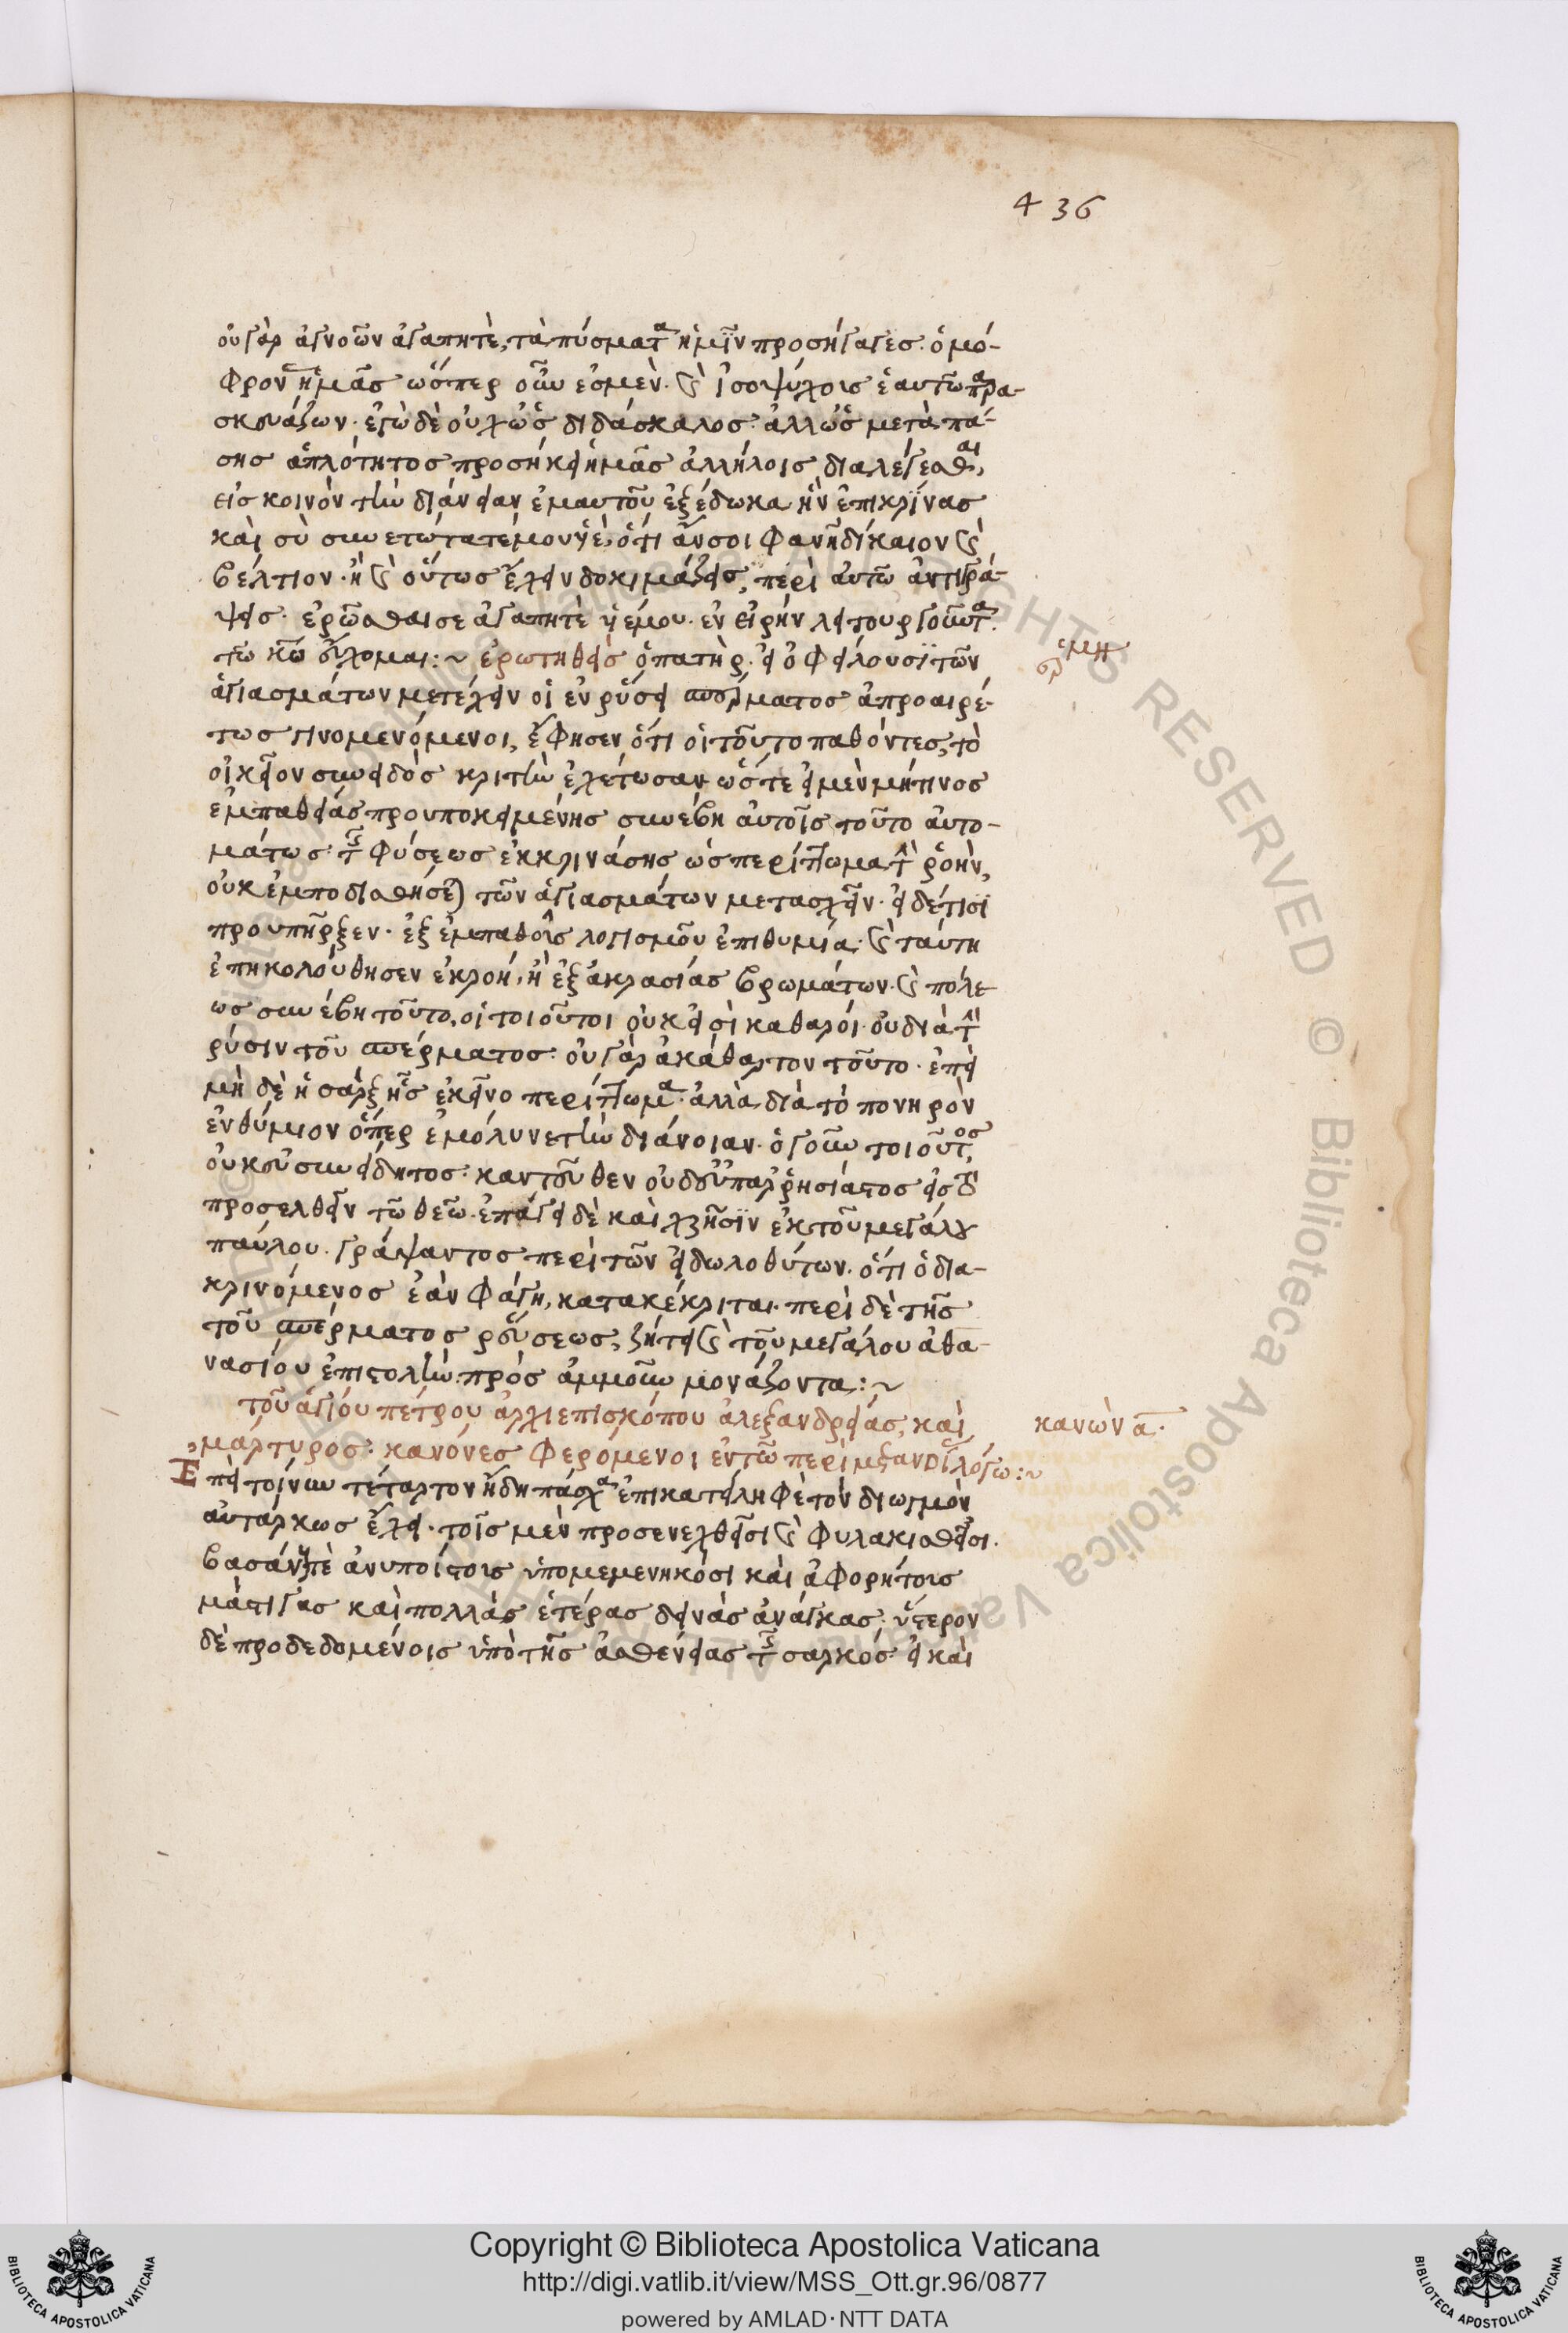 436
οὐ γὰρ ἀγνοῶν ἀγαπητὲ, τὰ πύσματα ἡμῖν προσήγαγες. ὁμό-
φρον ἡμᾶς ὥσπερ οὖν ἐσμὲν. καὶ ἰσοψύχοις ἑαυτῶ παρα-
σκευάζων. ἐγὼ δὲ οὐχ ὡς διδάσκαλος. ἀλλ' ὡς μετὰ πά-
σης ἁπλότητος προσῆκεν ἡμᾶς ἀλλήλοις διαλέγεσθαι,
εἰς κοινὸν τὴν διάνοιαν ἐμαυτοῦ ἐξέδωκα ἣν ἐπικρίνας
καὶ σὺ συνετώτατέ μου υἱὲ, ὅτι ἄν σοι φανῆ δίκαιον καὶ
βέλτιον. ἢ καὶ οὕτως ἔχειν δοκιμάζεις, περὶ αὐτῶν ἀντιγρά-
ψεις. ἐρρῶσθαι σε ἀγαπητὲ υἱέ μου. ἐν εἰρήνῃ λειτουργοῦντα
τῶ κῶ εὔχομαι :~ ἐρωτηθεὶς ὁ πατὴρ. εἰ ὀφείλουσϊ τῶν
ἁγιασμάτων μετέχειν οἱ ἐν ῥύσει σπέρματος ἀπροαιρέ-
τως γινομενόμενοι, ἔφησεν ὅτι οἱ τοῦτο παθόντες, τὸ
οἰκεῖον συνειδὸς κριτὴν ἐχέτωσαν ὥστε εἰ μὲν μήτινος
ἐμπαθείας προυποκειμένης συνέβη αὐτοῖς τοῦτο αὐτο-
μάτως τῆς φύσεως ἐκκρινάσης ὡς περίττωμα τὴν ῥοὴν,
οὐκ ἐμποδισθήσεται τῶν ἁγιασμάτων μετασχεῖν. εἰ δέ τισϊ
προυπῆρξεν. ἐξ ἐμπαθοῦς λογισμοῦ ἐπιθυμία. καὶ ταύτη
ἐπηκολούθησεν ἐκροή, ἢ ἐξ ἀκρασίας βρωμάτων. καὶ πόσε-
ως συνέβη τοῦτο, οἱ τοιοῦτοι οὐκ εἰσὶ καθαροί. οὐ διὰ τὴν
ρύσιν τοῦ σπέρματος. οὐ γὰρ ἀκάθαρτον τοῦτο. ἐπεὶ
μὴ δὲ ἡ σὰρξ ἧς ἐκεῖνο περίττωμα. ἀλλὰ διὰ τὸ πονηρὸν
ἐνθύμιον ὅπερ ἐμόλυνε τὴν διάνοιαν. ὁ γοῦν τοιοῦτος,
οὐκ εὐσυνείδητος. καντεῦθεν οὐδ' εὐπαρρησίαστος εἰς τὸ
προσελθεῖν τῶ θεῶ. ἐπάγει δὲ καὶ χρῆσϊν ἐκ τοῦ μεγάλου
παύλου. γράψαντος περὶ τῶν εἰδωλοθύτων. ὅτι ὁ δια-
κρινόμενος ἐὰν φάγη, κατακέκριται. περὶ δὲ τῆς
τοῦ σπέρματος ρεύσεως, ζήτει καὶ τοῦ μεγάλου ἀθα-
νασίου ἐπιστολὴν πρὸς ἀμμοῦν μονάζοντα :~
ἑρμη
τοῦ ἁγίου πέτρου ἀρχιεπισκόπου ἀλεξανδρείας, καὶ
μάρτυρος. κανόνες φερόμενοι ἐν τῶ περὶ μετανοίας λόγω :~
κανὼν α.
Ἐπεὶ τοίνυν τέταρτον ἤδη πάσχα ἐπικατείληφε τὸν διωγμὸν
αὐτάρκως ἔχει. τοῖς μὲν προσενεχθεῖσι καὶ φυλακισθεῖσι.
βασάνους τε ἀνυποίστους ὑπομεμενηκόσι καὶ ἀφορήτους
μάστιγας καὶ πολλὰς ἑτέρας δεινὰς ἀνάγκας. ὕστερον
δὲ προδεδομένοις ὑπὸ τῆς ἀσθενείας τῆς σαρκός. εἰ καὶ
Copyright © Biblioteca Apostolica Vaticana
http://digi.vatlib.it/view/MSS_Ott.gr.96/0877
powered by AMLAD · NTT DATA